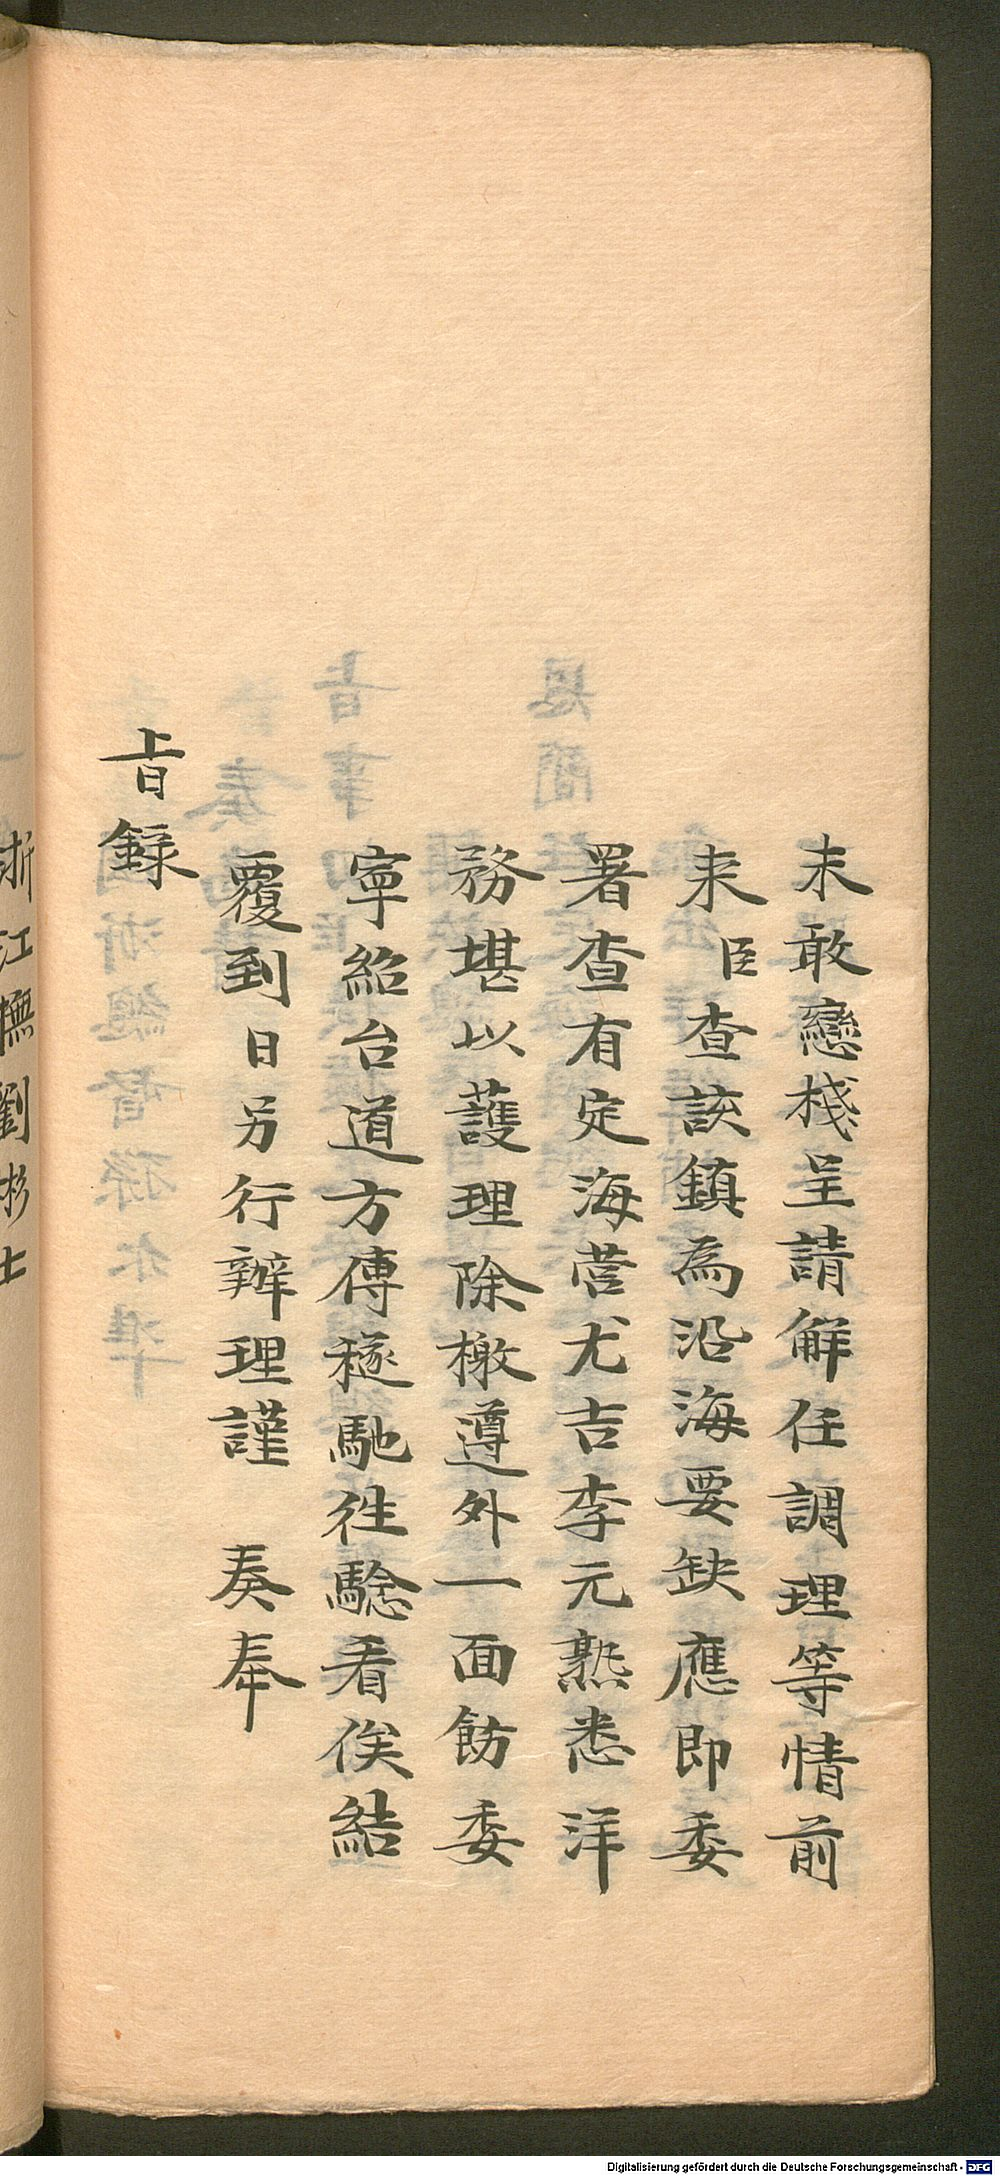 未敢戀棧呈請解任調理等情前
来臣查該鎮為沿海要缺應即委
署查有定海营尤吉李元熟悉洋
務堪以護理除檄遵外一面飭委
寧紹台道方傳穟馳往驗看俟結
覆到日另行辦理謹 奏奉
旨録
浙江撫劉彬士
Digitalisierung gefördert durch die Deutsche Forschungsgemeinschaft - DFG